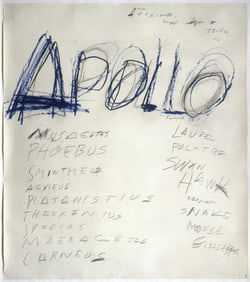 APOLLO
MUSAGETES
PHOEBUS
SMINTHEU
PLATANISTIUS
THEOXENIUS
SPODIUS
MOERAGETES
CARNEUS
LAUREL
PALM TREE
SWAN
HAWK
SNAKE
MOUSE